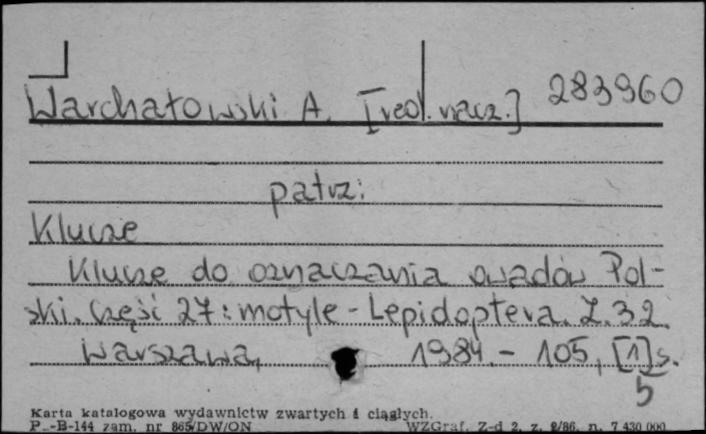 Warchałowski A. [red. nacz.] 283960
patrz:
Klucze
Klucze do oznaczania owadów Pol-
ski. Część 27: motyle - Lepidoptera. Z. 32.
Warszawa, 1984. - 105, [1] s.
5
Karta katalogowa wydawnictw zwartych i ciągłych.
P.-B-144 zam. nr 865/DW/ON WZGraf. Z-d 2, z. 2/86, n. 7 430 000